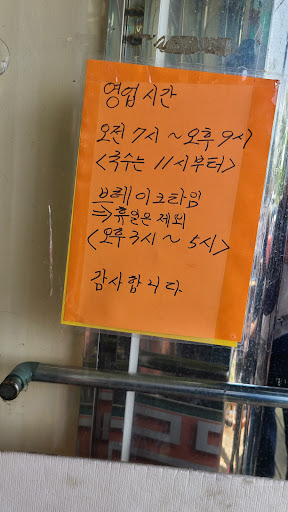 영업시간
오전 7시 ~ 오후 9시
<국수는 11시부터>
브레이크타임
⇒휴일은 제외
<오후 3시 ~ 5시>
감사합니다